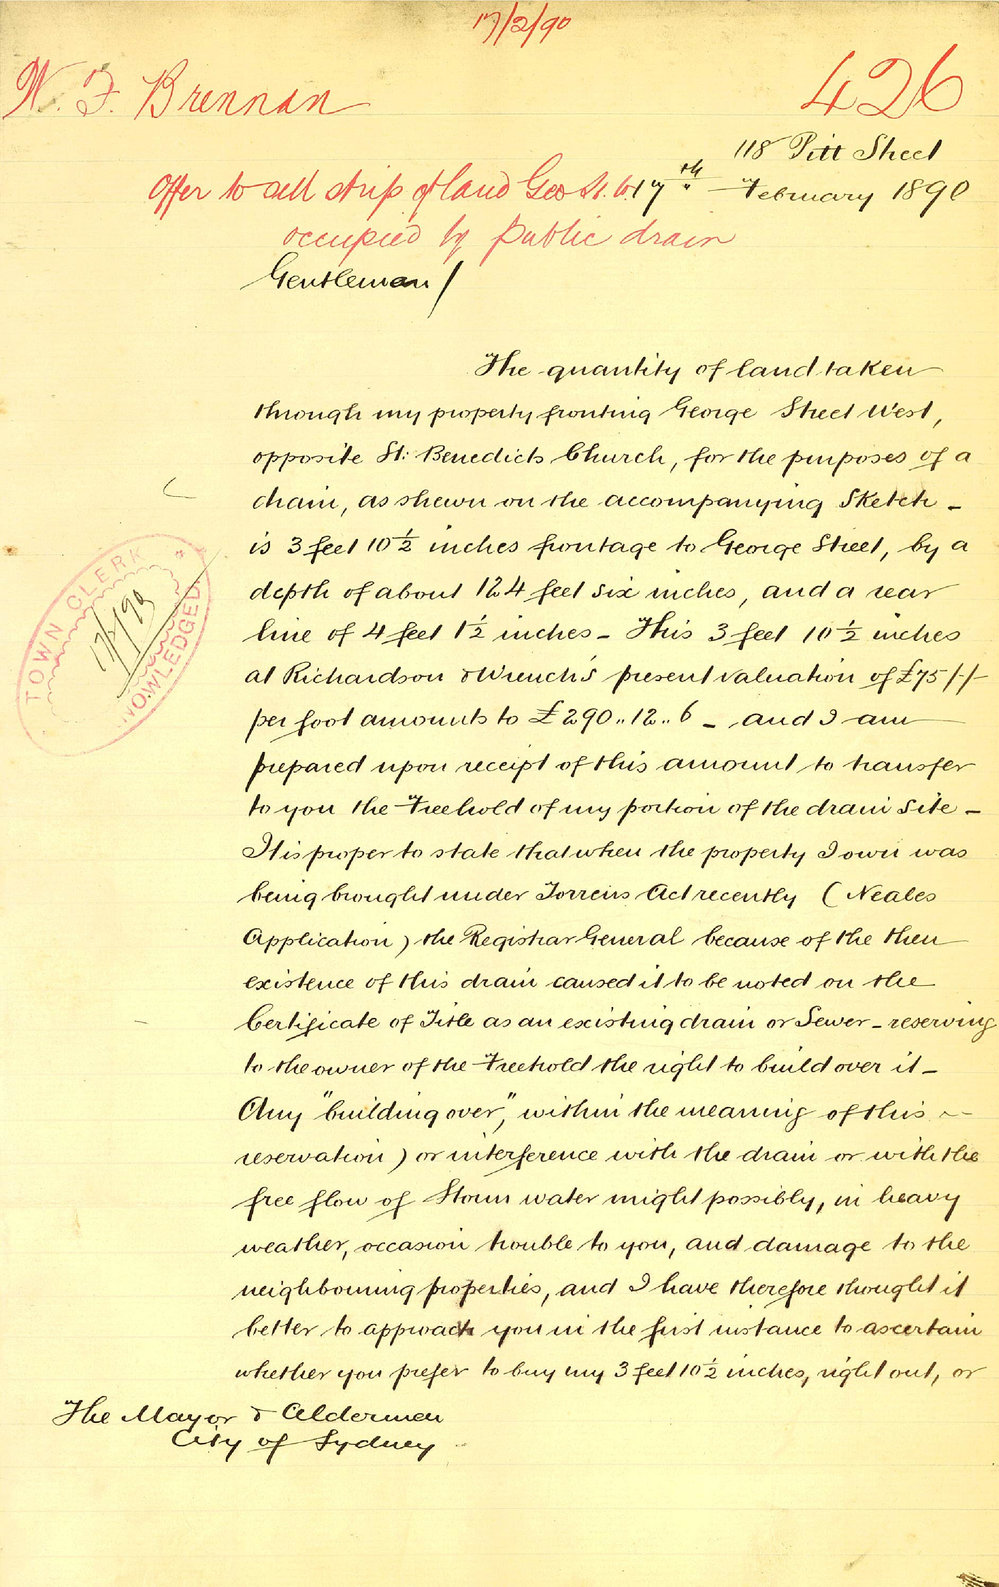 17/2/90
W. F. Brennan
426
118 Pitt Street
Offer to sell strip of land Geo St. W. 17th February 1890
occupied by public drain
Gentlemen/
The quantity of land taken
through my property fronting George Street West,
opposite St: Benedicts Church, for the purposes of a
drain, as shewn on the accompanying Sketch -
is 3 feet 10½ inches frontage to George Street, by a
depth of about 124 feet six inches, and a rear
line of 4 feet 1½ inches - This 3 feet 10½ inches
at Richardson & Wrench's present valuation of £75/-/-
per foot amounts to £290..12..6 - and I am
prepared upon receipt of this amount to transfer
to you the Freehold of my portion of the drain site -
It is proper to state that when the property I own was
being brought under Torrens Act recently (Neales
Application) the Registrar General because of the then
existence of this drain caused it to be noted on the
Certificate of Title as an existing drain or Sewer - reserving
to the owner of the Freehold the right to build over it -
Any "building over", within the meaning of this
reservation) or interference with the drain or with the
free flow of Storm water might possibly, in heavy
weather, occasion trouble to you, and damage to the
neighbouring properties, and I have therefore thought it
better to approach you in the first instance to ascertain
whether you prefer to buy my 3 feet 10½ inches, right out, or
The Mayor & Aldermen
City of Sydney
TOWN CLERK
17/2/90